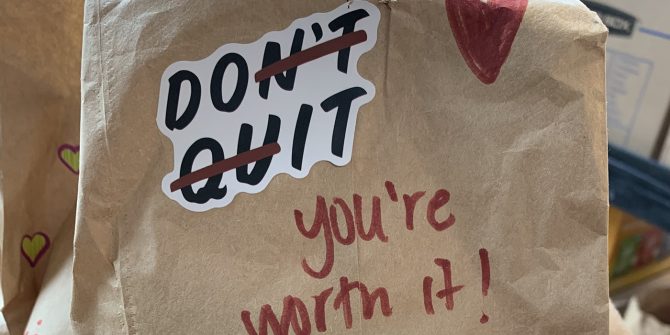 DON'T
QUIT
you're
worth it!